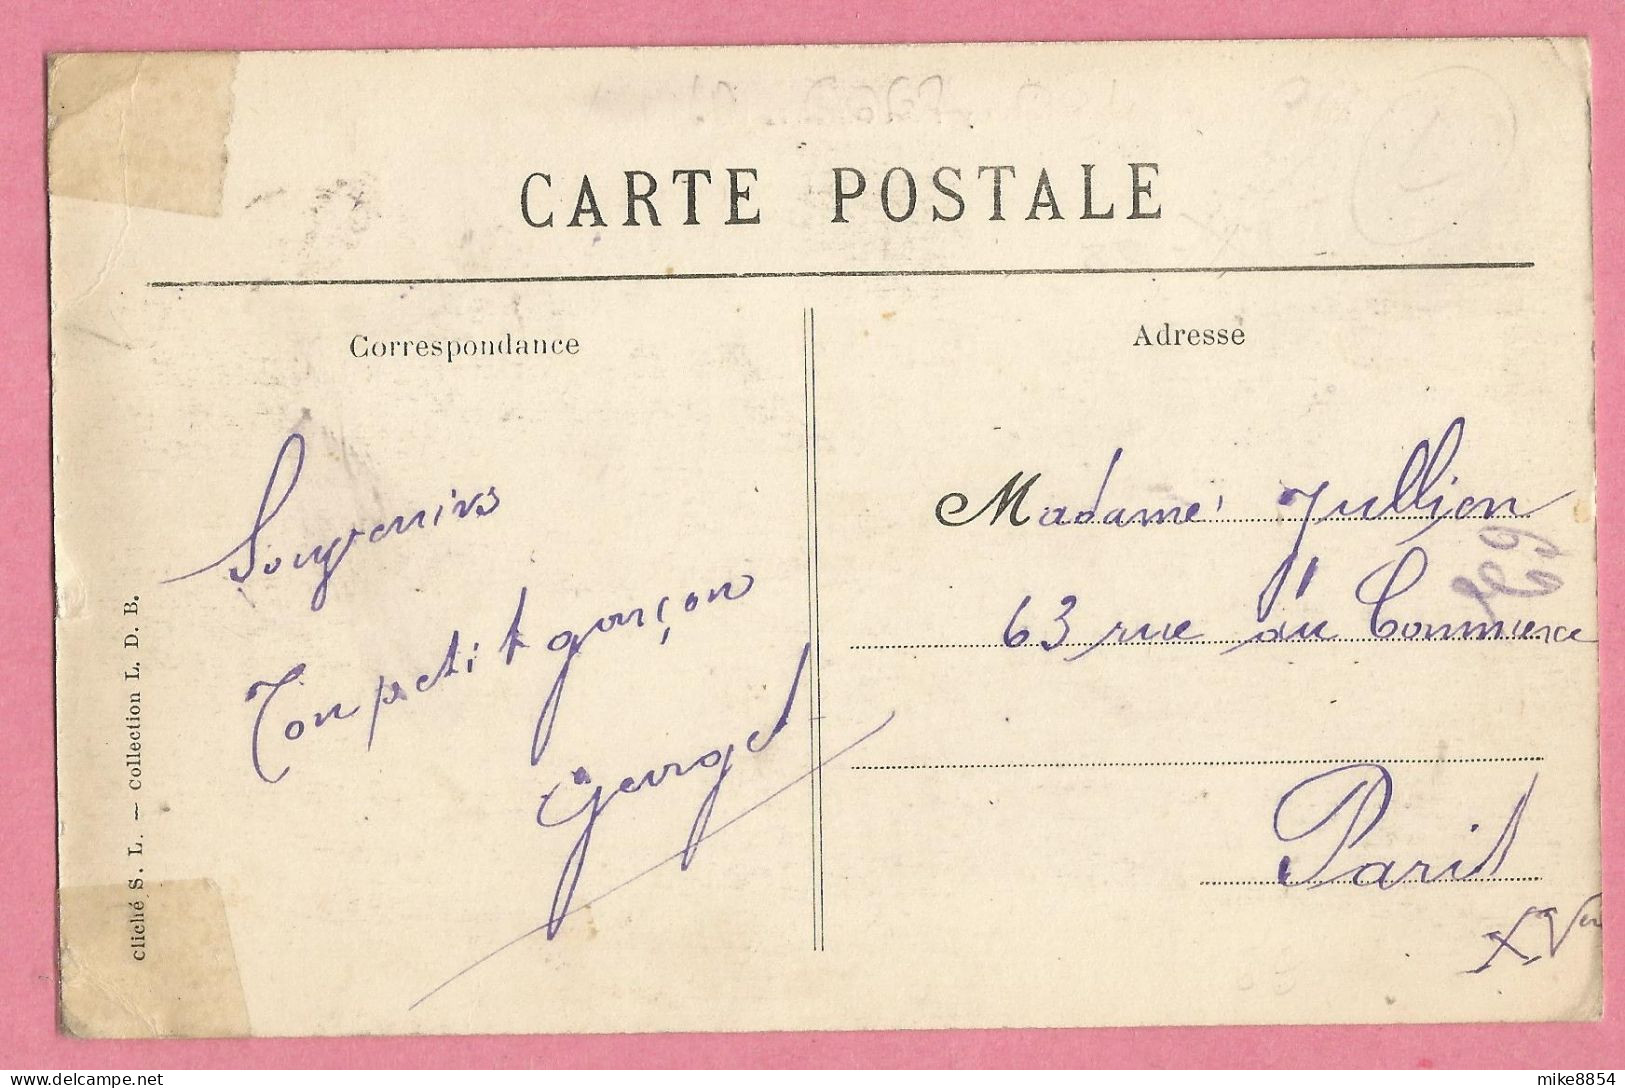 CARTE POSTALE
Correspondance
Adresse
Souvenirs
Ton petit garçon
Georges
Madame Jullien
63 rue du Commerce
Paris
XVe
cliché S. L. — Collection L. D. B.
delcampe.net
mike8854